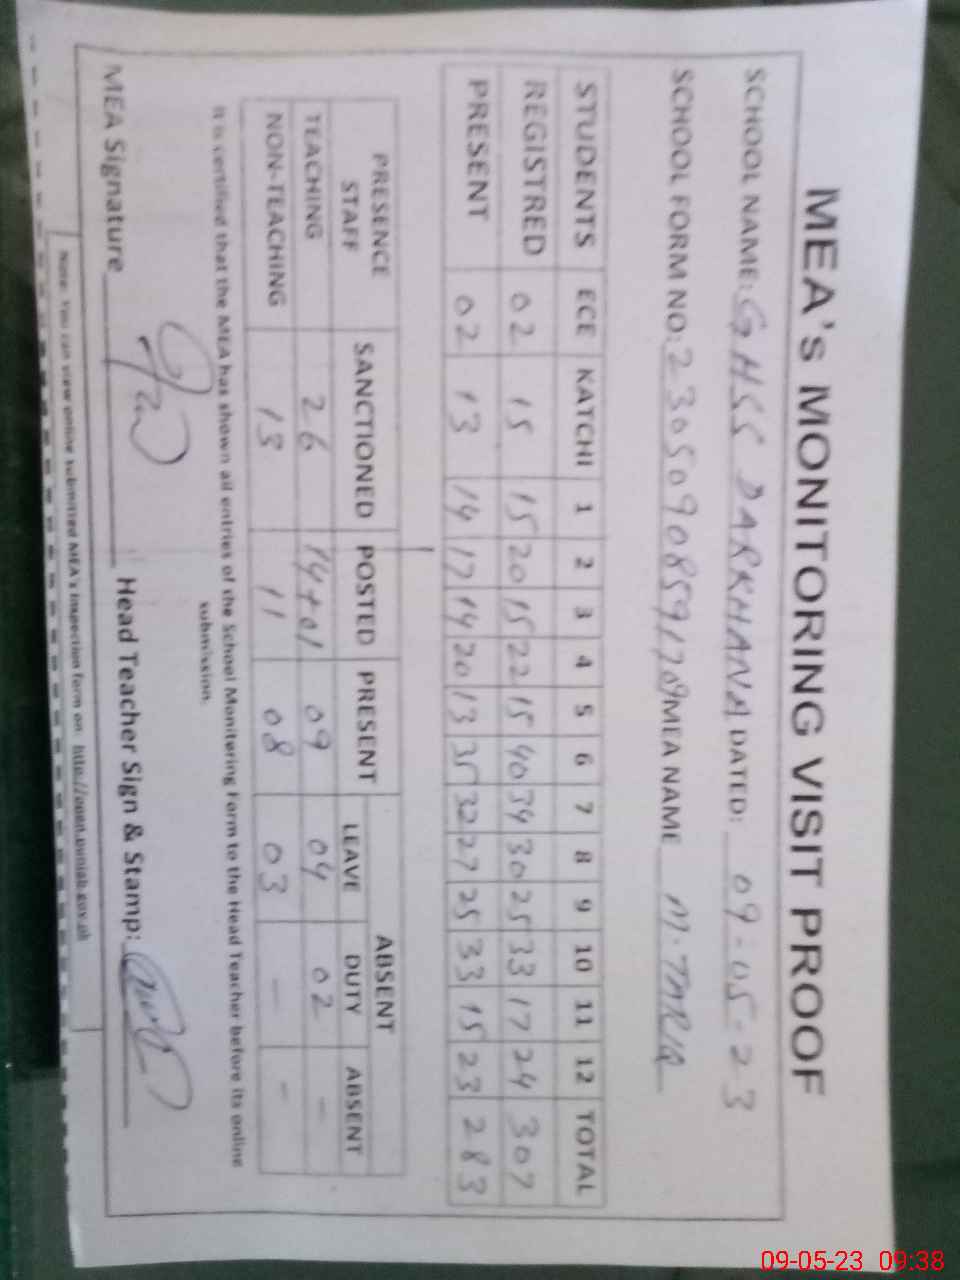 MEA's MONITORING VISIT PROOF
SCHOOL NAME: GHSS DARKHANA DATED: 09-05-23
SCHOOL FORM NO: 23050908591709 MEA NAME M. TARIQ
STUDENTS ECE KATCHI 1 2 3 4 5 6 7 8 9 10 11 12 TOTAL
REGISTRED 02 15 15 20 15 22 15 40 34 30 25 33 17 24 307
PRESENT 02 13 14 17 14 20 13 35 32 27 25 33 15 23 283
PRESENCE STAFF SANCTIONED POSTED PRESENT ABSENT
LEAVE DUTY ABSENT
TEACHING 26 14+01 09 04 02 -
NON-TEACHING 13 11 08 03 - -
It is certified that the MEA has shown all entries of the School Monitoring Form to the Head Teacher before its online
submission.
MEA Signature Head Teacher Sign & Stamp:
Note: You can view online submitted MEA's inspection form on: http://open.punjab.gov.pk
09-05-23 09:38